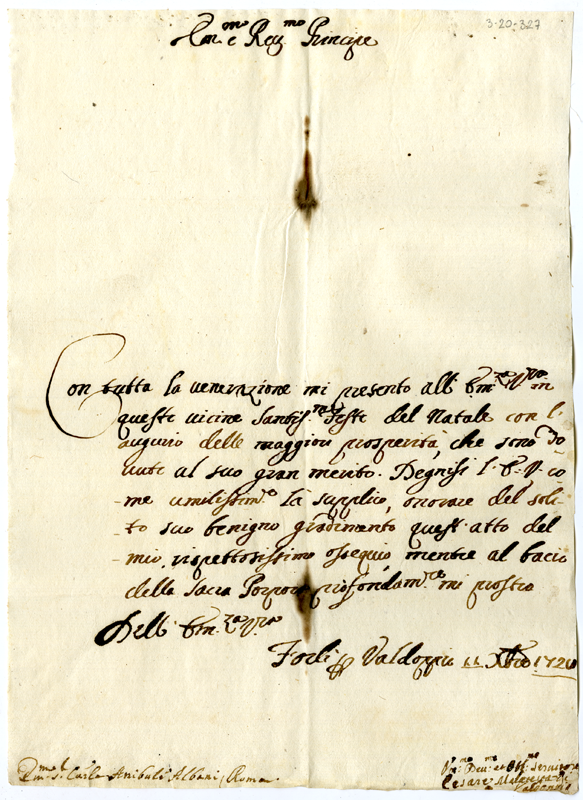 3-20-327
Em.mo e Reu.mo Principe
Con tutta la uenerazione mi presento all' Em.za V.ra in
queste uicine Santis.me Feste del Natale con l'
augurio delle maggiori prosperità, che sono do
uute al suo gran merito. Degnisi l' E. V. co
-me umilissim.e la supplico, onorare del soli
-to suo benigno gradimento quest' atto del
-mio rispettosissimo ossequio, mentre al bacio
della Sacra Porpora profondam.te mi prostro
Dell' Em.za V.ra
Forlì p Valdoppio 11 Xbre
Em.mo S.r Card.le Anibale Albani / Roma
Vm.o Deu.mo et Obl.mo Seruitore
Cesare